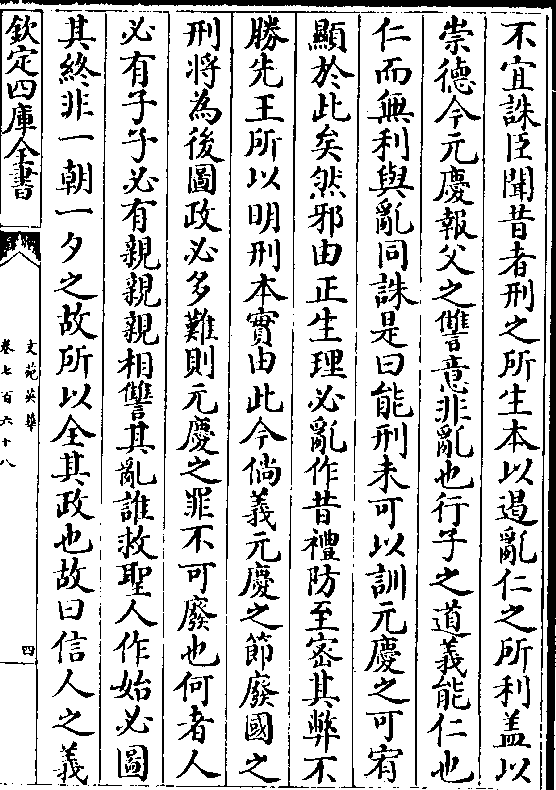 不宜誅臣聞昔者刑之所生本以遏亂仁之所利盖以
崇德今元慶報父之讐意非亂也行子之道義能仁也
仁而無利與亂同誅是曰能刑未可以訓元慶之可宥
顯於此矣然邪由正生理必亂作昔禮防至宻其弊不
勝先王所以明刑本實由此今倘義元慶之節廢國之
刑将為後圖政必多難則元慶之罪不可廢也何者人
必有子子必有親親親相讐其亂誰救聖人作始必圖
其終非一朝一夕之故所以全其政也故曰信人之義
欽定四庫全書
文苑英華
卷七百六十八
四